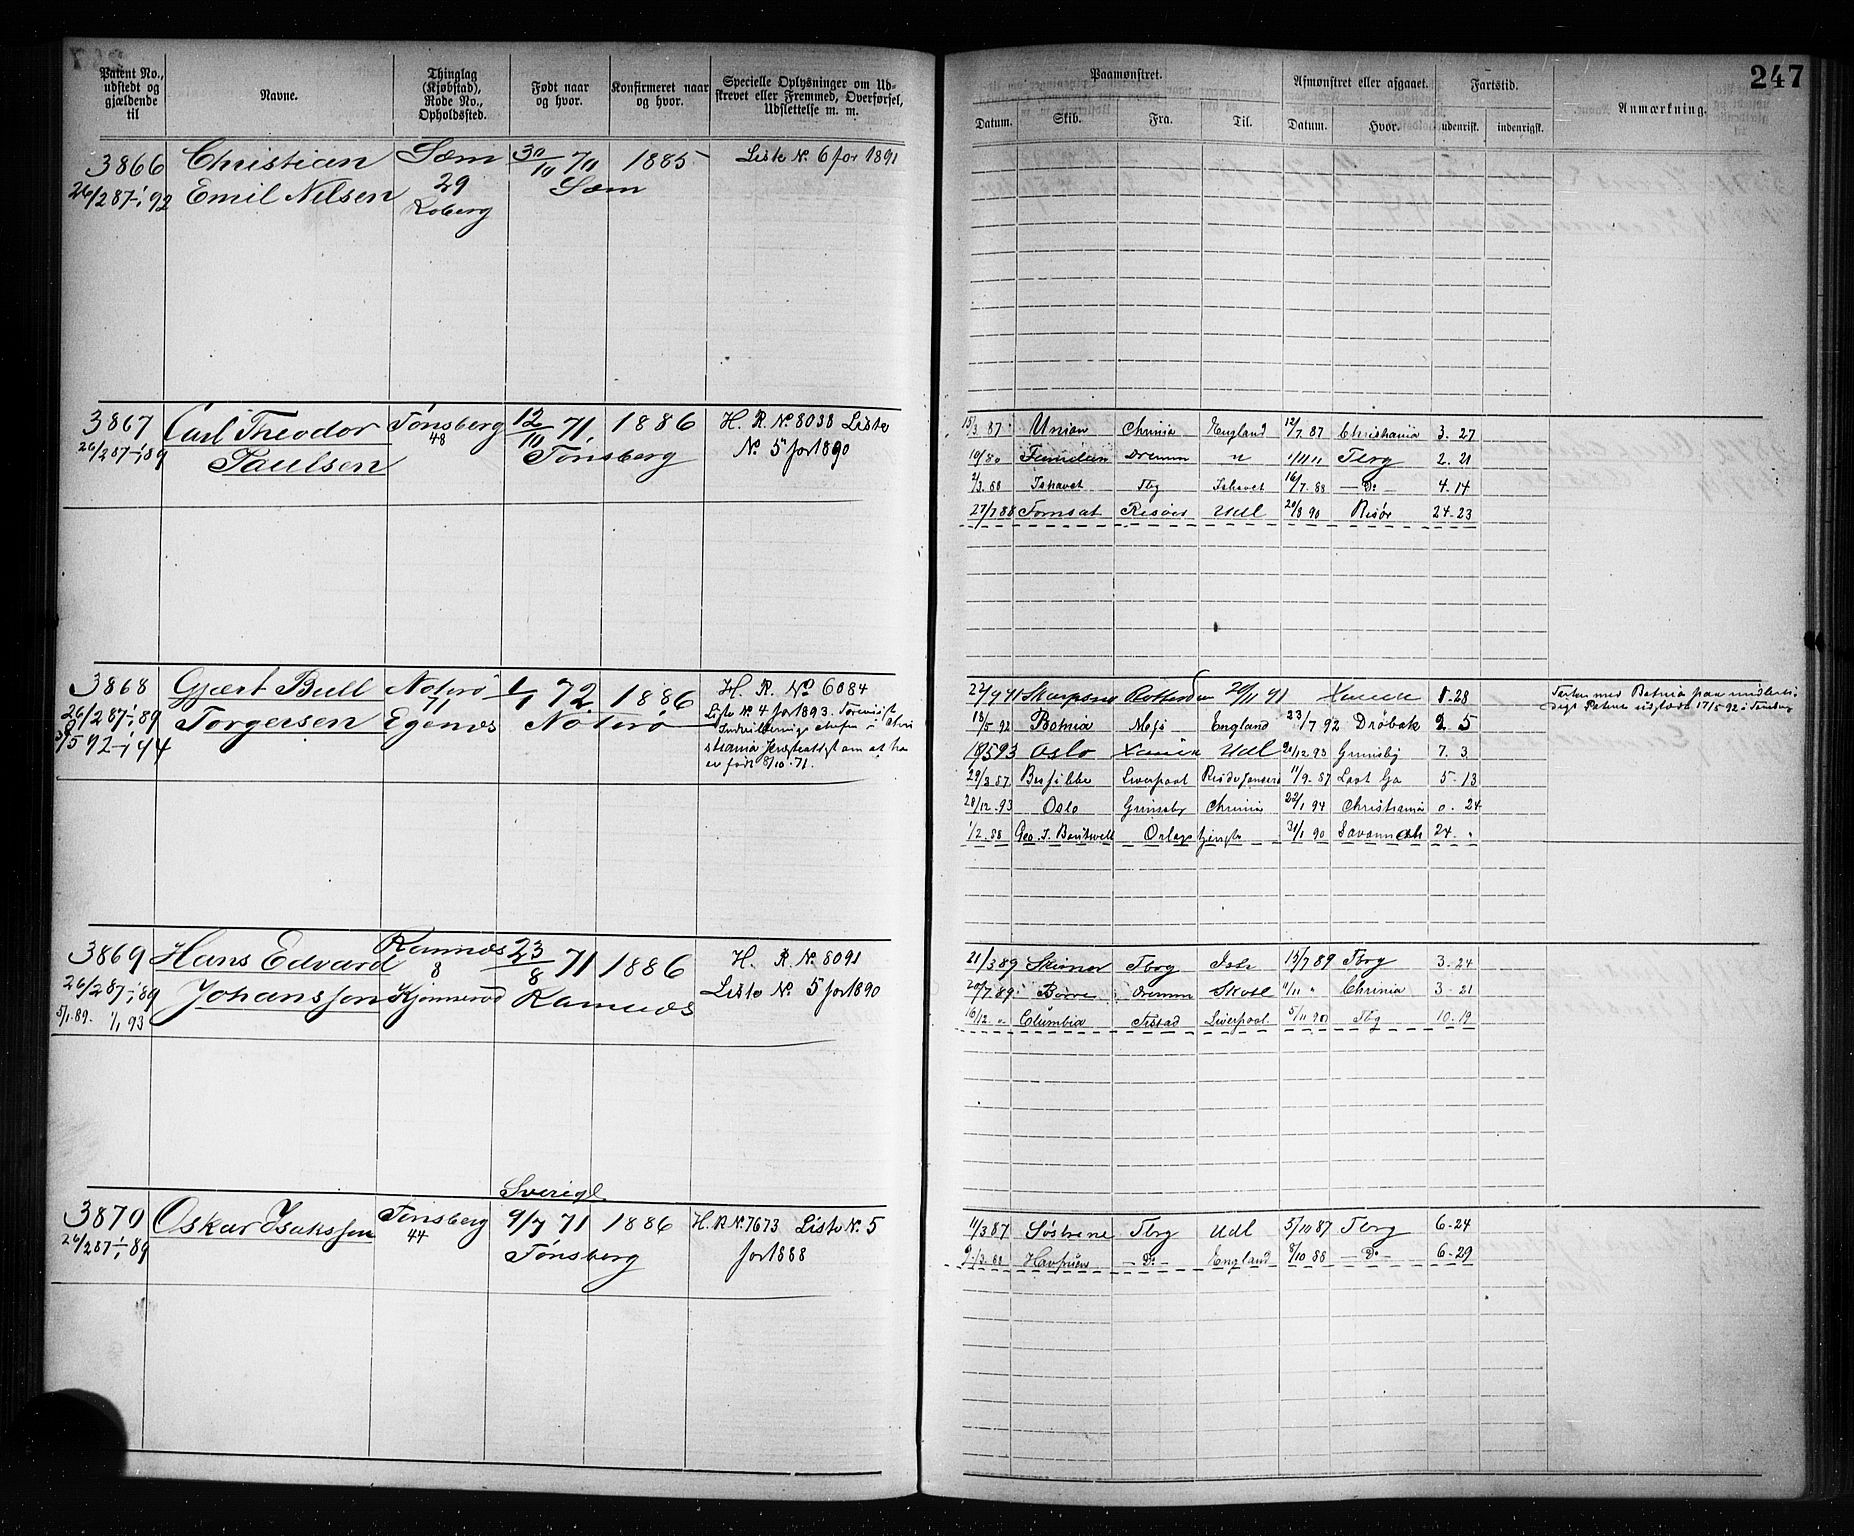 247
Patent No., udstedt og gjældende til
Navne.
Thinglag (Kjøbstad), Rode No., Opholdssted.
Født naar og hvor.
Konfirmeret naar og hvor.
Specielle Oplysninger om Udskrevet eller Fremmed, Overførsel, Udslettelse m. m.
Paamønstret.
Afmønstret eller afgaaet.
Fartstid.
Anmærkning.
Datum. Skib. Fra. Til. Datum. Hvor. udenrigst. indenrigst.
3866 Christian Sæm 30/10 70 1885 Liste No. 6 for 1891
26/2 87-1/1 92 Emil Nilsen 29 Sæm
Roberg
3867 Carl Theodor Tønsberg 12/10 71. 1886 H. R. No. 8038 Liste
26/2 87-1/1 89 Paulsen 48 Tønsberg No. 5 for 1890
15/3 87 Union Chrnia England 12/7 87 Christiania 3. 27
10/8 Familien Dramm Tbrg 2. 21
2/3. 88 Ishavet Tbg Ishavet 16/7. 88 - Do - 4. 14
27/7 88 Risöer Udl 20/8 90 Risør 24. 23
3868 Gjært Bull Nøterö 1/1 72. 1886 H. R. No 6084
26/2 87-1/1 89 Torgersen 71 Nøterö Liste No. 4 for 1893.
5 92-1/1 94 Egenæs
er født 8/10. 71.
22/9 91 20/11 91 1. 28
13/5 92 Botnia Moss England 23/7 92 Drøbak 2. 5
18/5 93 Oslo Udl 20/12 93 Grimsby 7. 3
29/3 87 Liverpool 11/9. 87 5. 13
20/12. 93 Oslo Grimsby Chrnia 22/1 94 Christiania 0. 24
1/2. 88 31/1 90 Savannah 24.
3869 Hans Edvard Ramnæs 23/8 71 1886 H. R. No. 8091
26/2 87-1/1 89 Johanssen 8 Ramnæs Liste No. 5 for 1890
5/1. 89. 1/1 93 Kjønnerød
21/3 89 Skirner Tbrg 15/7 89 Tbrg 3. 24
20/7 89 Børre Dramm Skotl 11/11 " Chrnia 3. 21
16/12. " Columbia Liverpool 5/11 90 Tbg 10. 19
Sverige
3870 Oskar Isakssen Tønsberg 9/7 71 1886 H. R. No. 7673 Liste No. 5
26/2 87-1/1 89 44 Tønsberg for 1888
11/3 87 Søstrene Tbrg Udl 5/10 87 Tbrg 6. 24
9/3. 88 Havfruen - Do - England 8/10 88 - Do - 6. 29